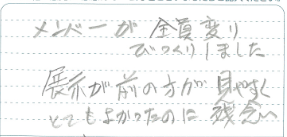 メンバーが全員変り
びっくりしました
展示が前の方が見やすく
とてもよかったのに残念